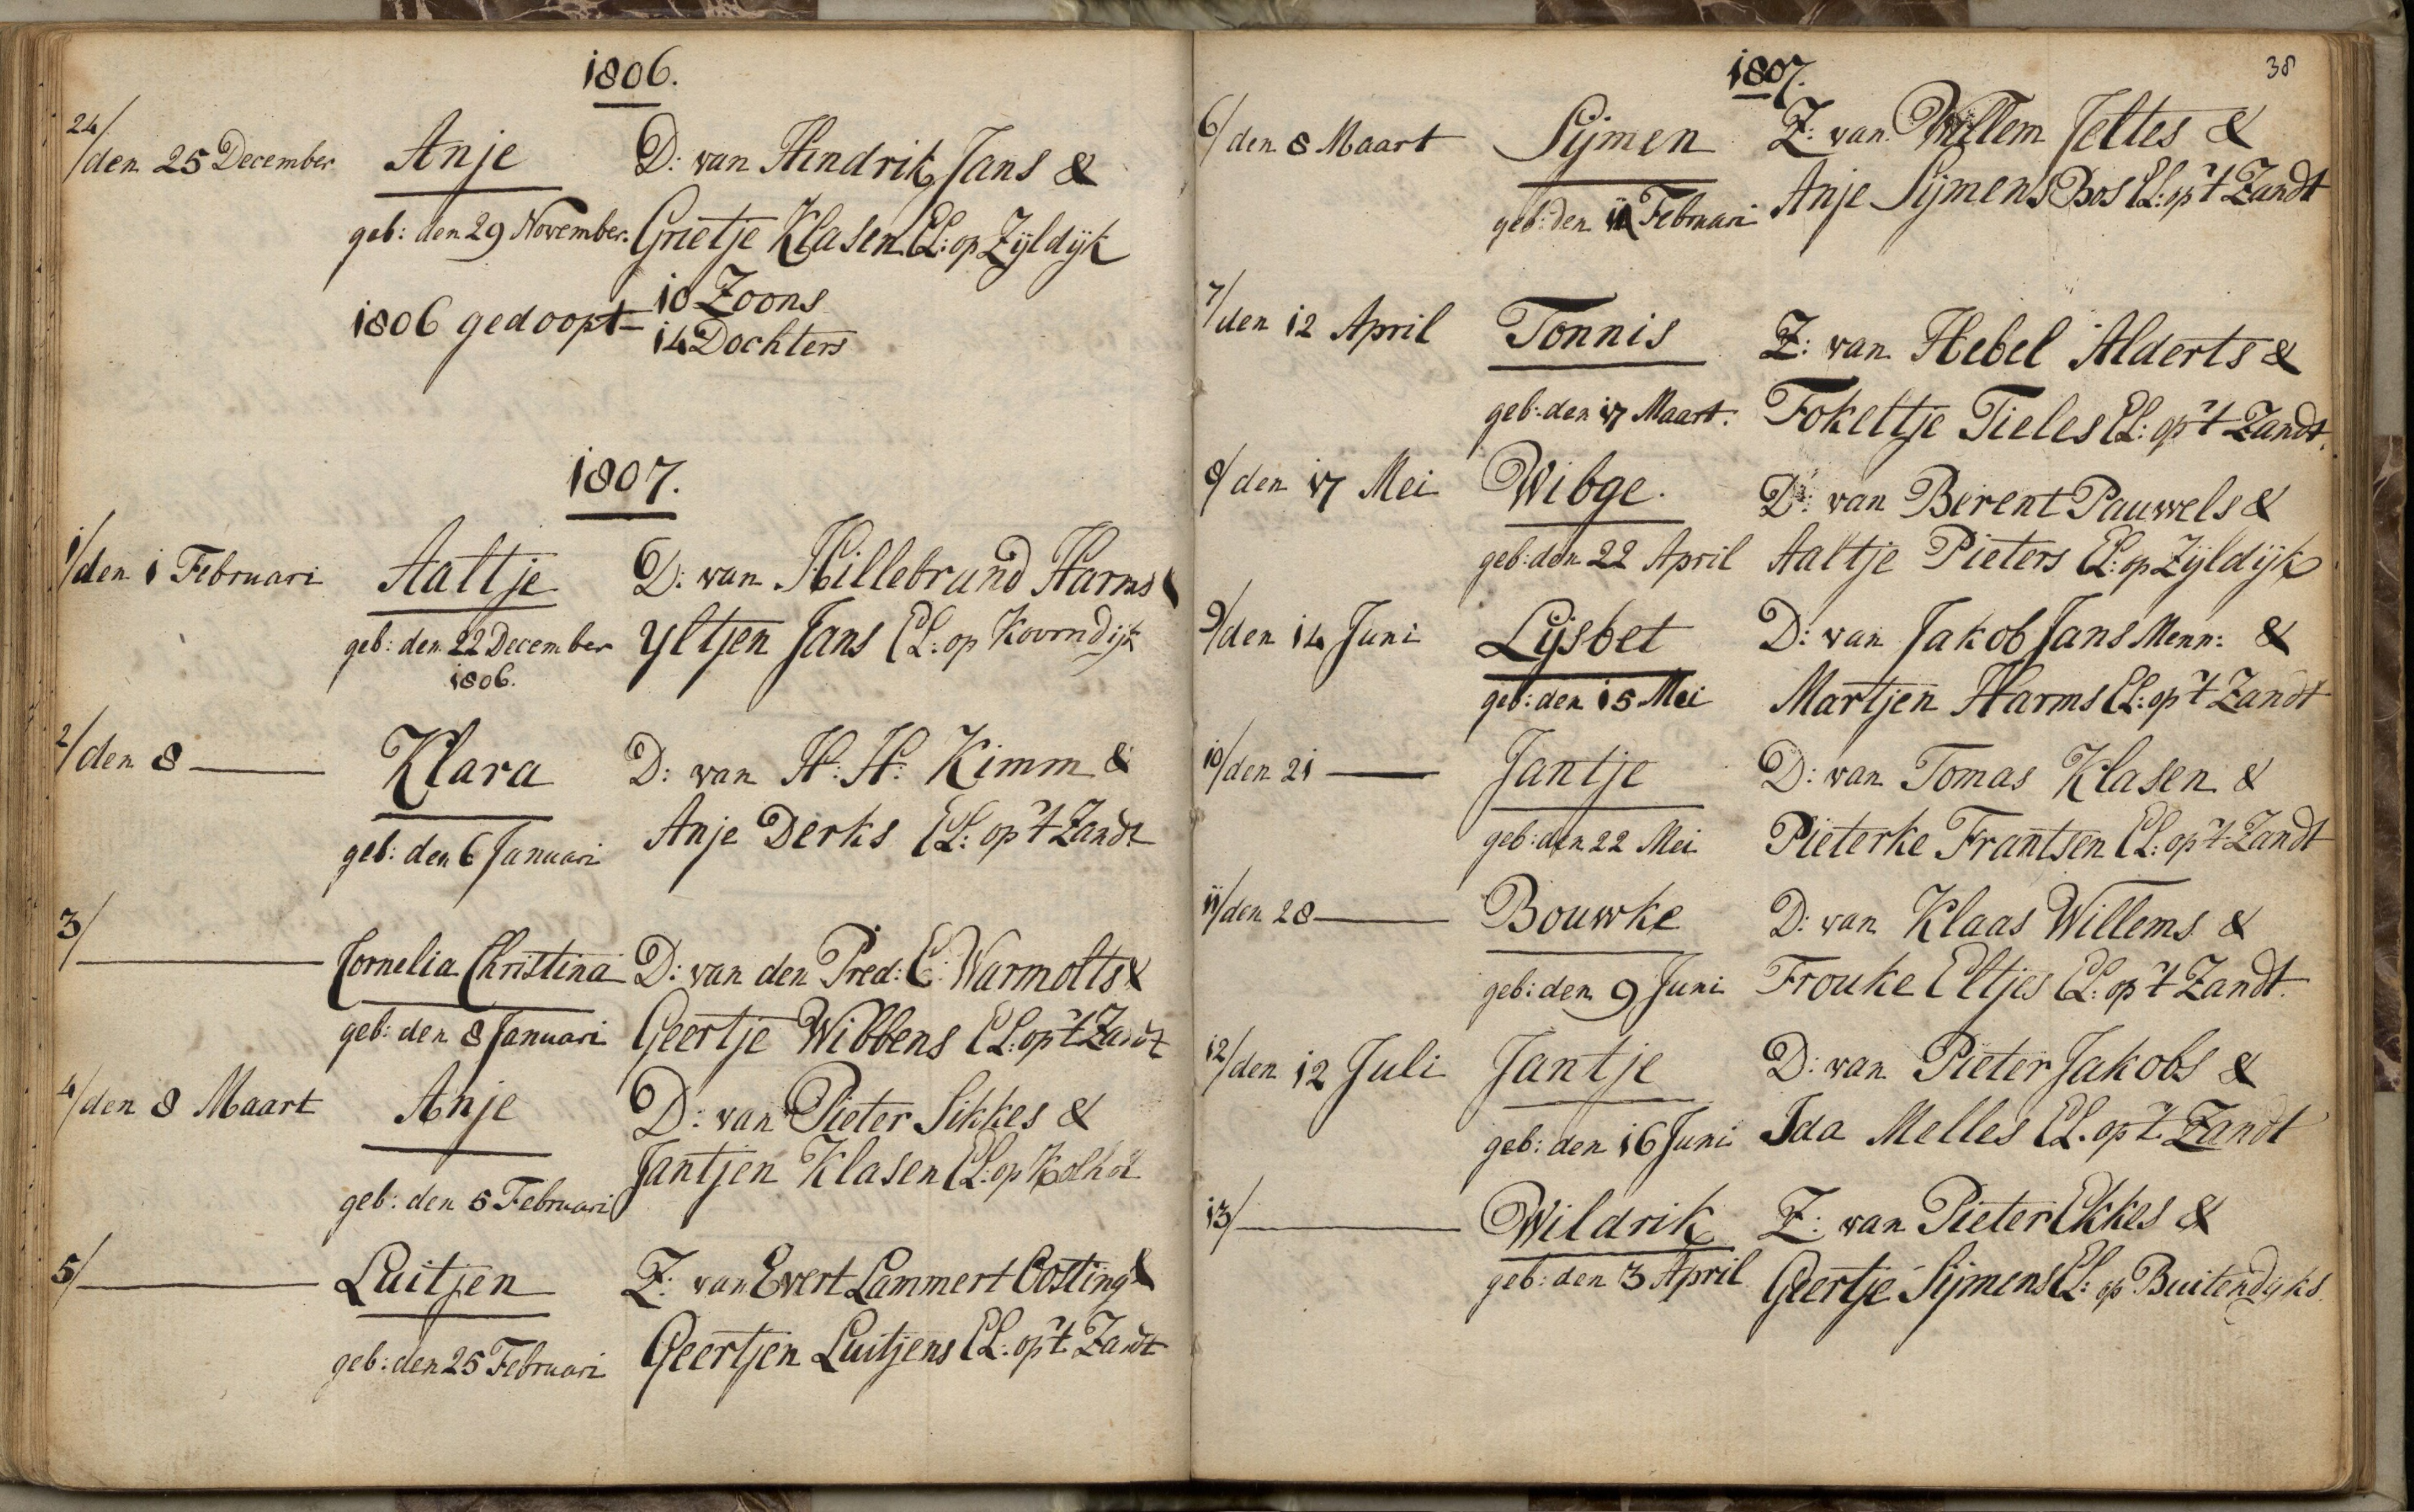 1806.
24/
den 25 December Anje D: van Hendrik Jans &
geb: den 29 November. Grietje Klasen EL: op Zijldijk
1806 gedoopt 10 Zoons
14 Dochters
1807.
1/den 1 Februari Aaltje D: van Hillebrand Harms &
geb: den 22 December Yltjen Jans EL: op Koorndijk
1806.
2/den 8 — Klara D: van H: H: Kimm &
geb: den 6 Januari Anje Derks EL: op 't Zandt
3/ — Cornelia Christina D: van den Pred: E: Warmolts &
geb: den 8 Januari Geertje Wibbens EL: op 't Zandt
4/den 8 Maart Anje D: van Pieter Sikkes &
geb: den 5 Februari Jantjen Klasen EL: op Kolhol
5/ — Luitjen Z: van Evert Lammert Oosting &
geb: den 25 Februari Geertjen Luitjens EL: op 't Zandt
38
1807.
6/den 8 Maart Sijmen Z: van Willem Jeltes &
geb: den 11 Februari Anje Sijmens Bos EL: op 't Zandt
7/den 12 April Tonnis Z: van Hebel Alderts &
geb: den 17 Maart. Fokeltje Tieles EL: op 't Zandt.
8/den 17 Mei Wibge. D: van Berent Pauwels &
geb: den 22 April Aaltje Pieters EL: op Zijldijk
9/den 14 Juni Lijsbet D: van Jakob Jans Menn: &
geb: den 15 Mei Martjen Harms EL: op 't Zandt
10/den 21 — Jantje D: van Tomas Klasen &
geb: den 22 Mei Pieterke Frantsen EL: op 't Zandt
11/den 28 — Bouwke D: van Klaas Willems &
geb: den 9 Juni Frouke Eltjes EL: op 't Zandt.
12/den 12 Juli Jantje D: van Pieter Jakobs &
geb: den 16 Juni Ida Melles EL. op 't Zandt
13/ — Wildrik Z: van Pieter Ekkes &
geb: den 3 April Geertje Sijmens EL: op Buitendijks.